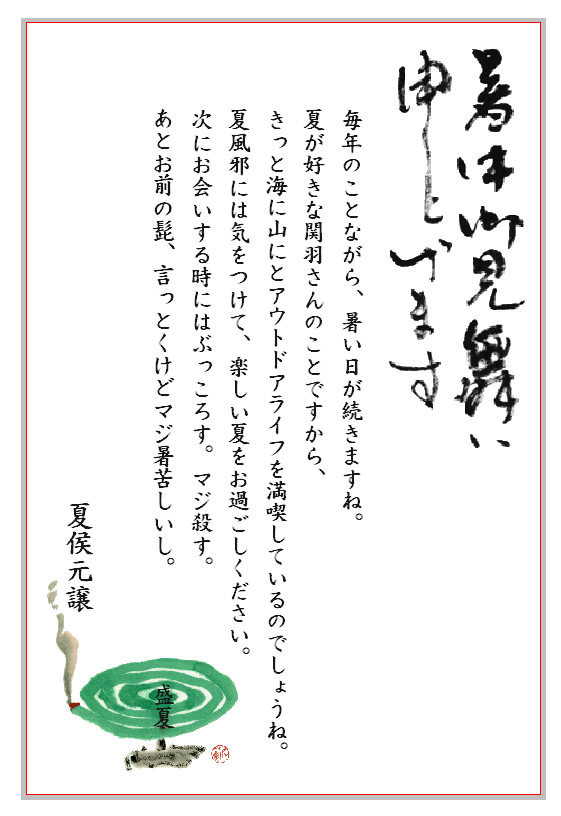 暑中御見舞い
申し上げます
毎年のことながら、暑い日が続きますね。
夏が好きな関羽さんのことですから、
きっと海に山にとアウトドアライフを満喫しているのでしょうね。
夏風邪には気をつけて、楽しい夏をお過ごしください。
次にお会いする時にはぶっころす。マジ殺す。
あとお前の髭、言っとくけどマジ暑苦しいし。
夏侯元譲
盛夏